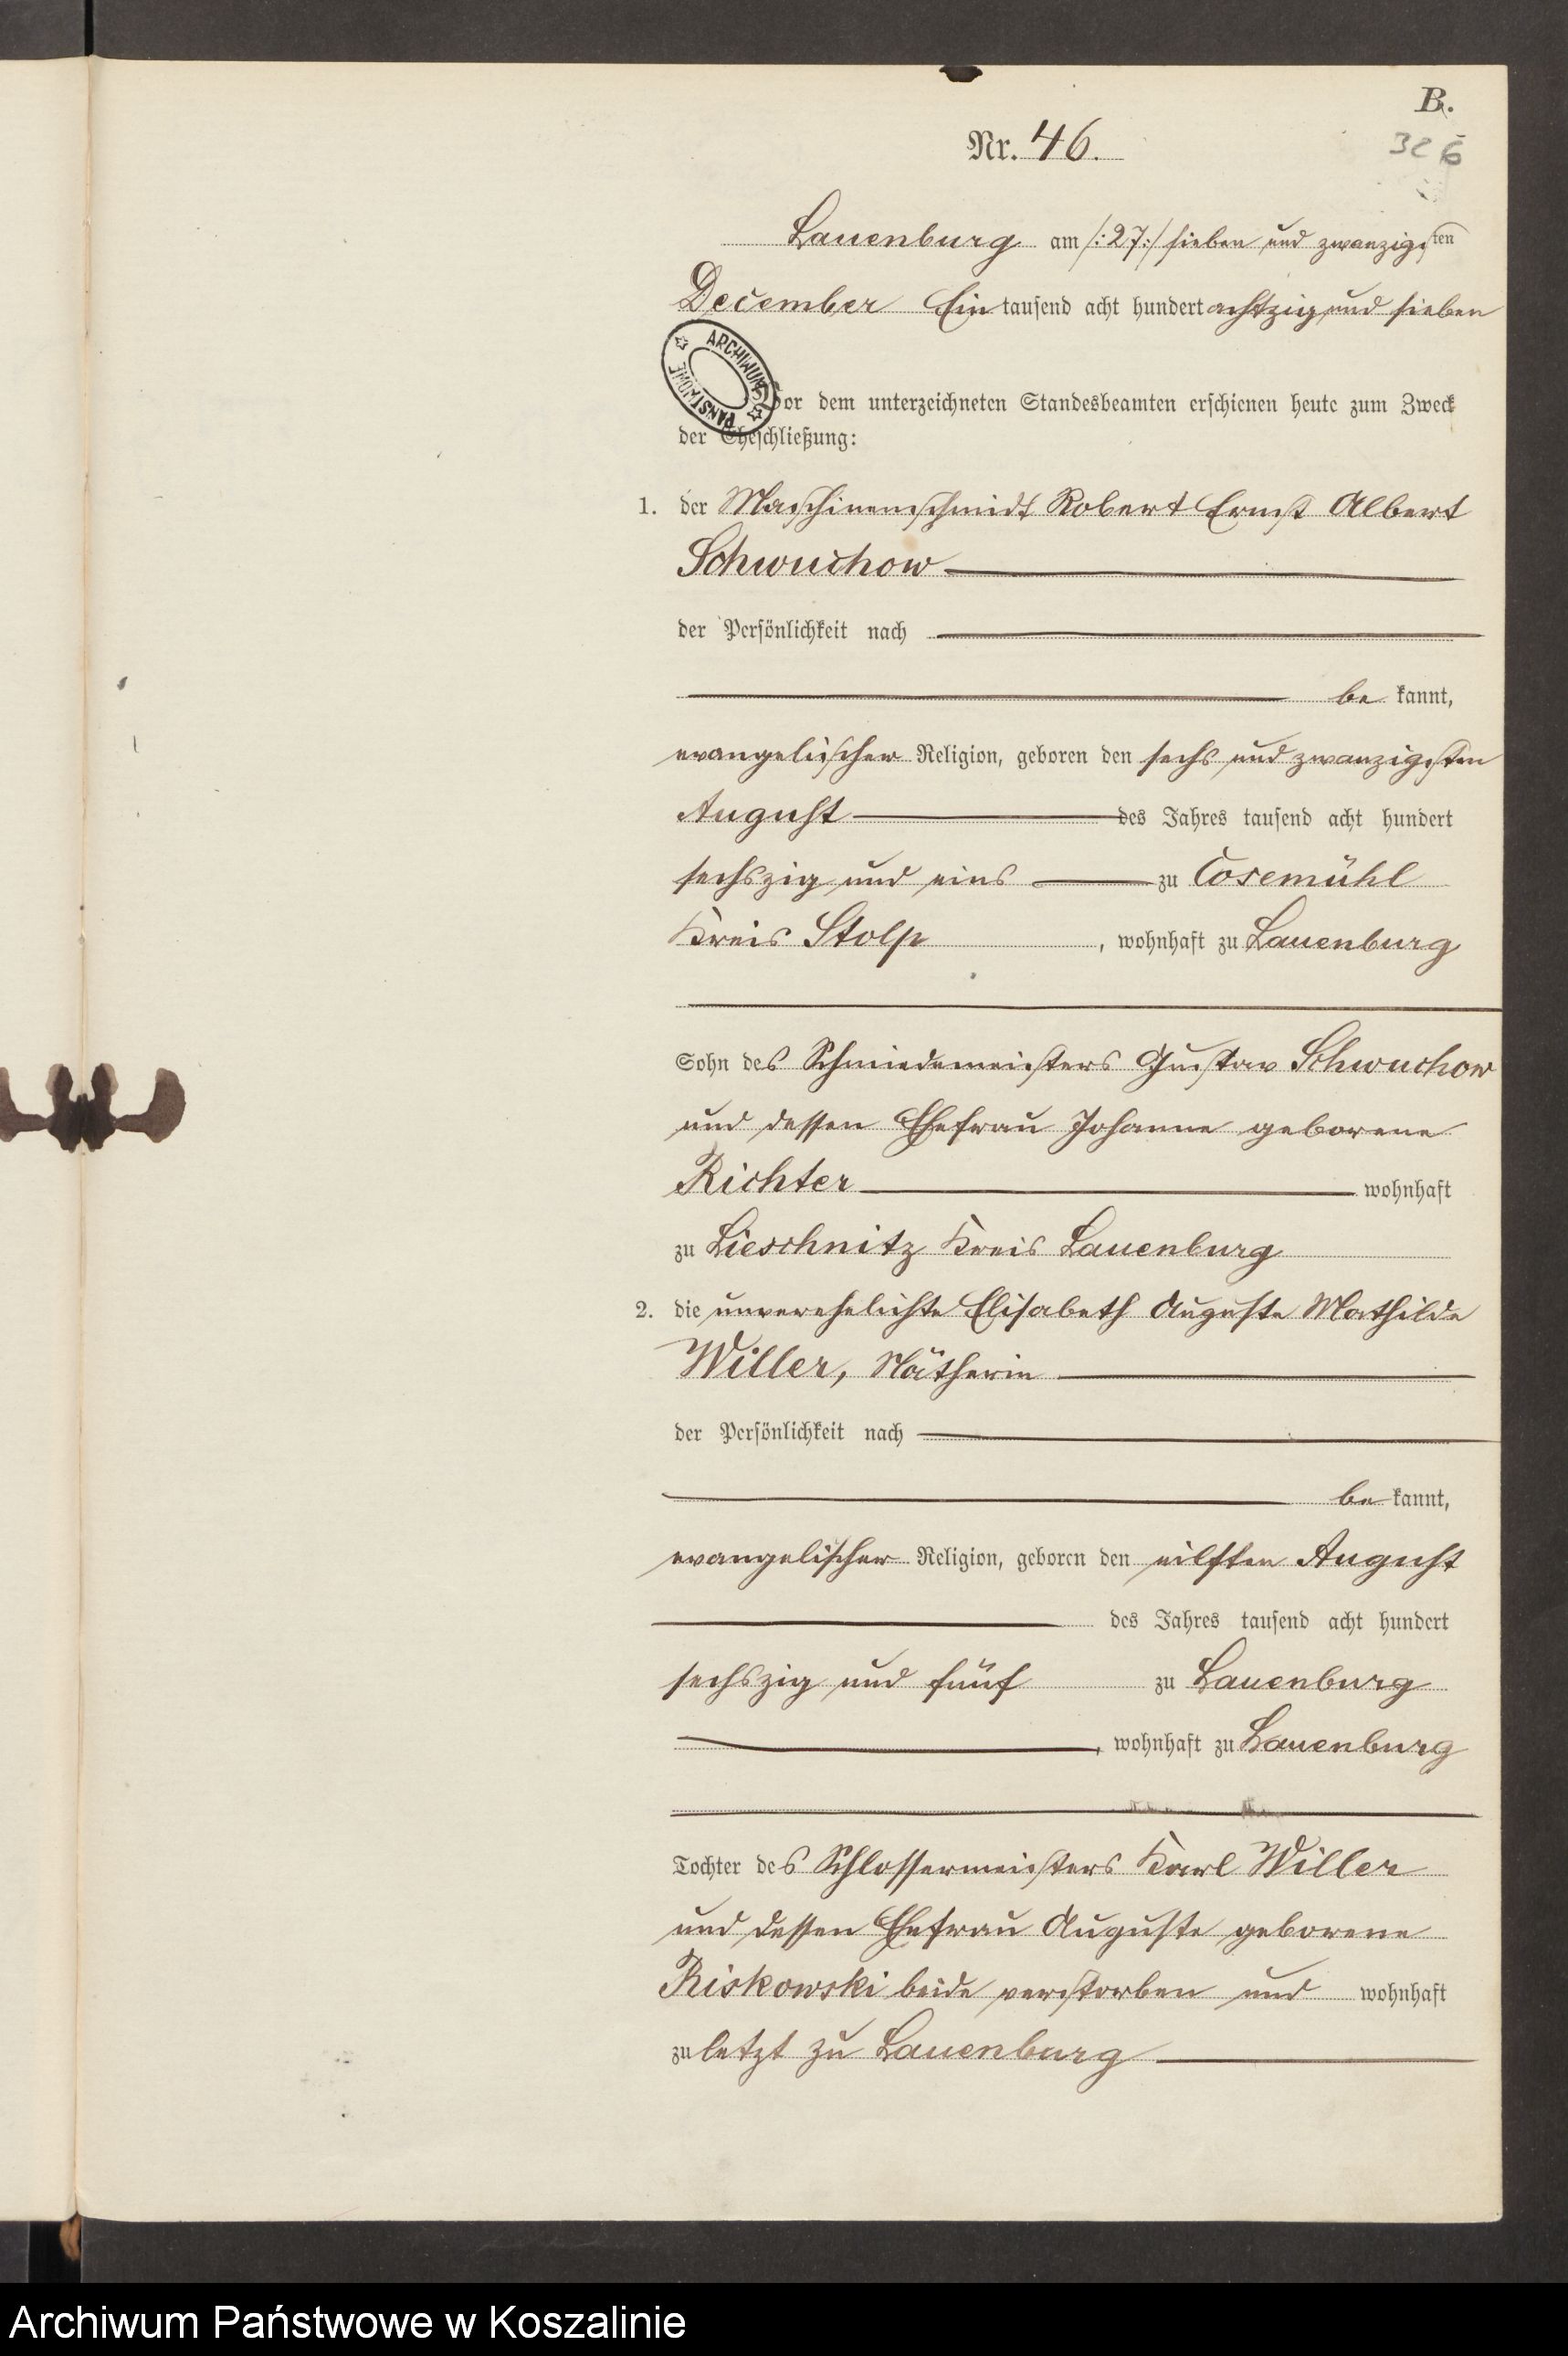 B.
Nr. 46.
326
Lauenburg am /:27:/ sieben und zwanzigsten
December Ein tausend acht hundert achtzig und sieben
ARCHIWUM PAŃSTWOWE
Vor dem unterzeichneten Standesbeamten erschienen heute zum Zweck
der Eheschließung:
1. der Maschinenschmidt Robert Ernst Albert
Schwuchow
der Persönlichkeit nach
be kannt,
evangelischer Religion, geboren den sechs und zwanzigsten
August des Jahres tausend acht hundert
sechszig und eins zu Cosemühl
Kreis Stolp, wohnhaft zu Lauenburg
Sohn des Schmiedemeisters Gustav Schwuchow
und dessen Ehefrau Johanne geborene
Richter wohnhaft
zu Lieschnitz Kreis Lauenburg
2. die unverehelichte Elisabeth Auguste Mathilde
Willer, Nätherin
der Persönlichkeit nach
be kannt,
evangelischer Religion, geboren den eilften August
des Jahres tausend acht hundert
sechszig und fünf zu Lauenburg
, wohnhaft zu Lauenburg
Tochter des Schlossermeisters Karl Willer
und dessen Ehefrau Auguste geborene
Riskowski beide verstorben und wohnhaft
zuletzt zu Lauenburg
Archiwum Państwowe w Koszalinie